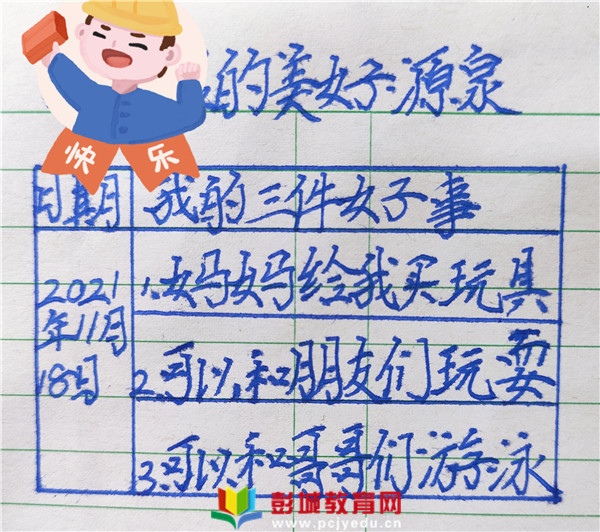 的美好源泉
快乐
日期 我的三件好事
2021年11月18号
1.妈妈给我买玩具
2.可以和朋友们玩耍
3.可以和哥哥们游泳
彭城教育网
www.pcjyedu.cn